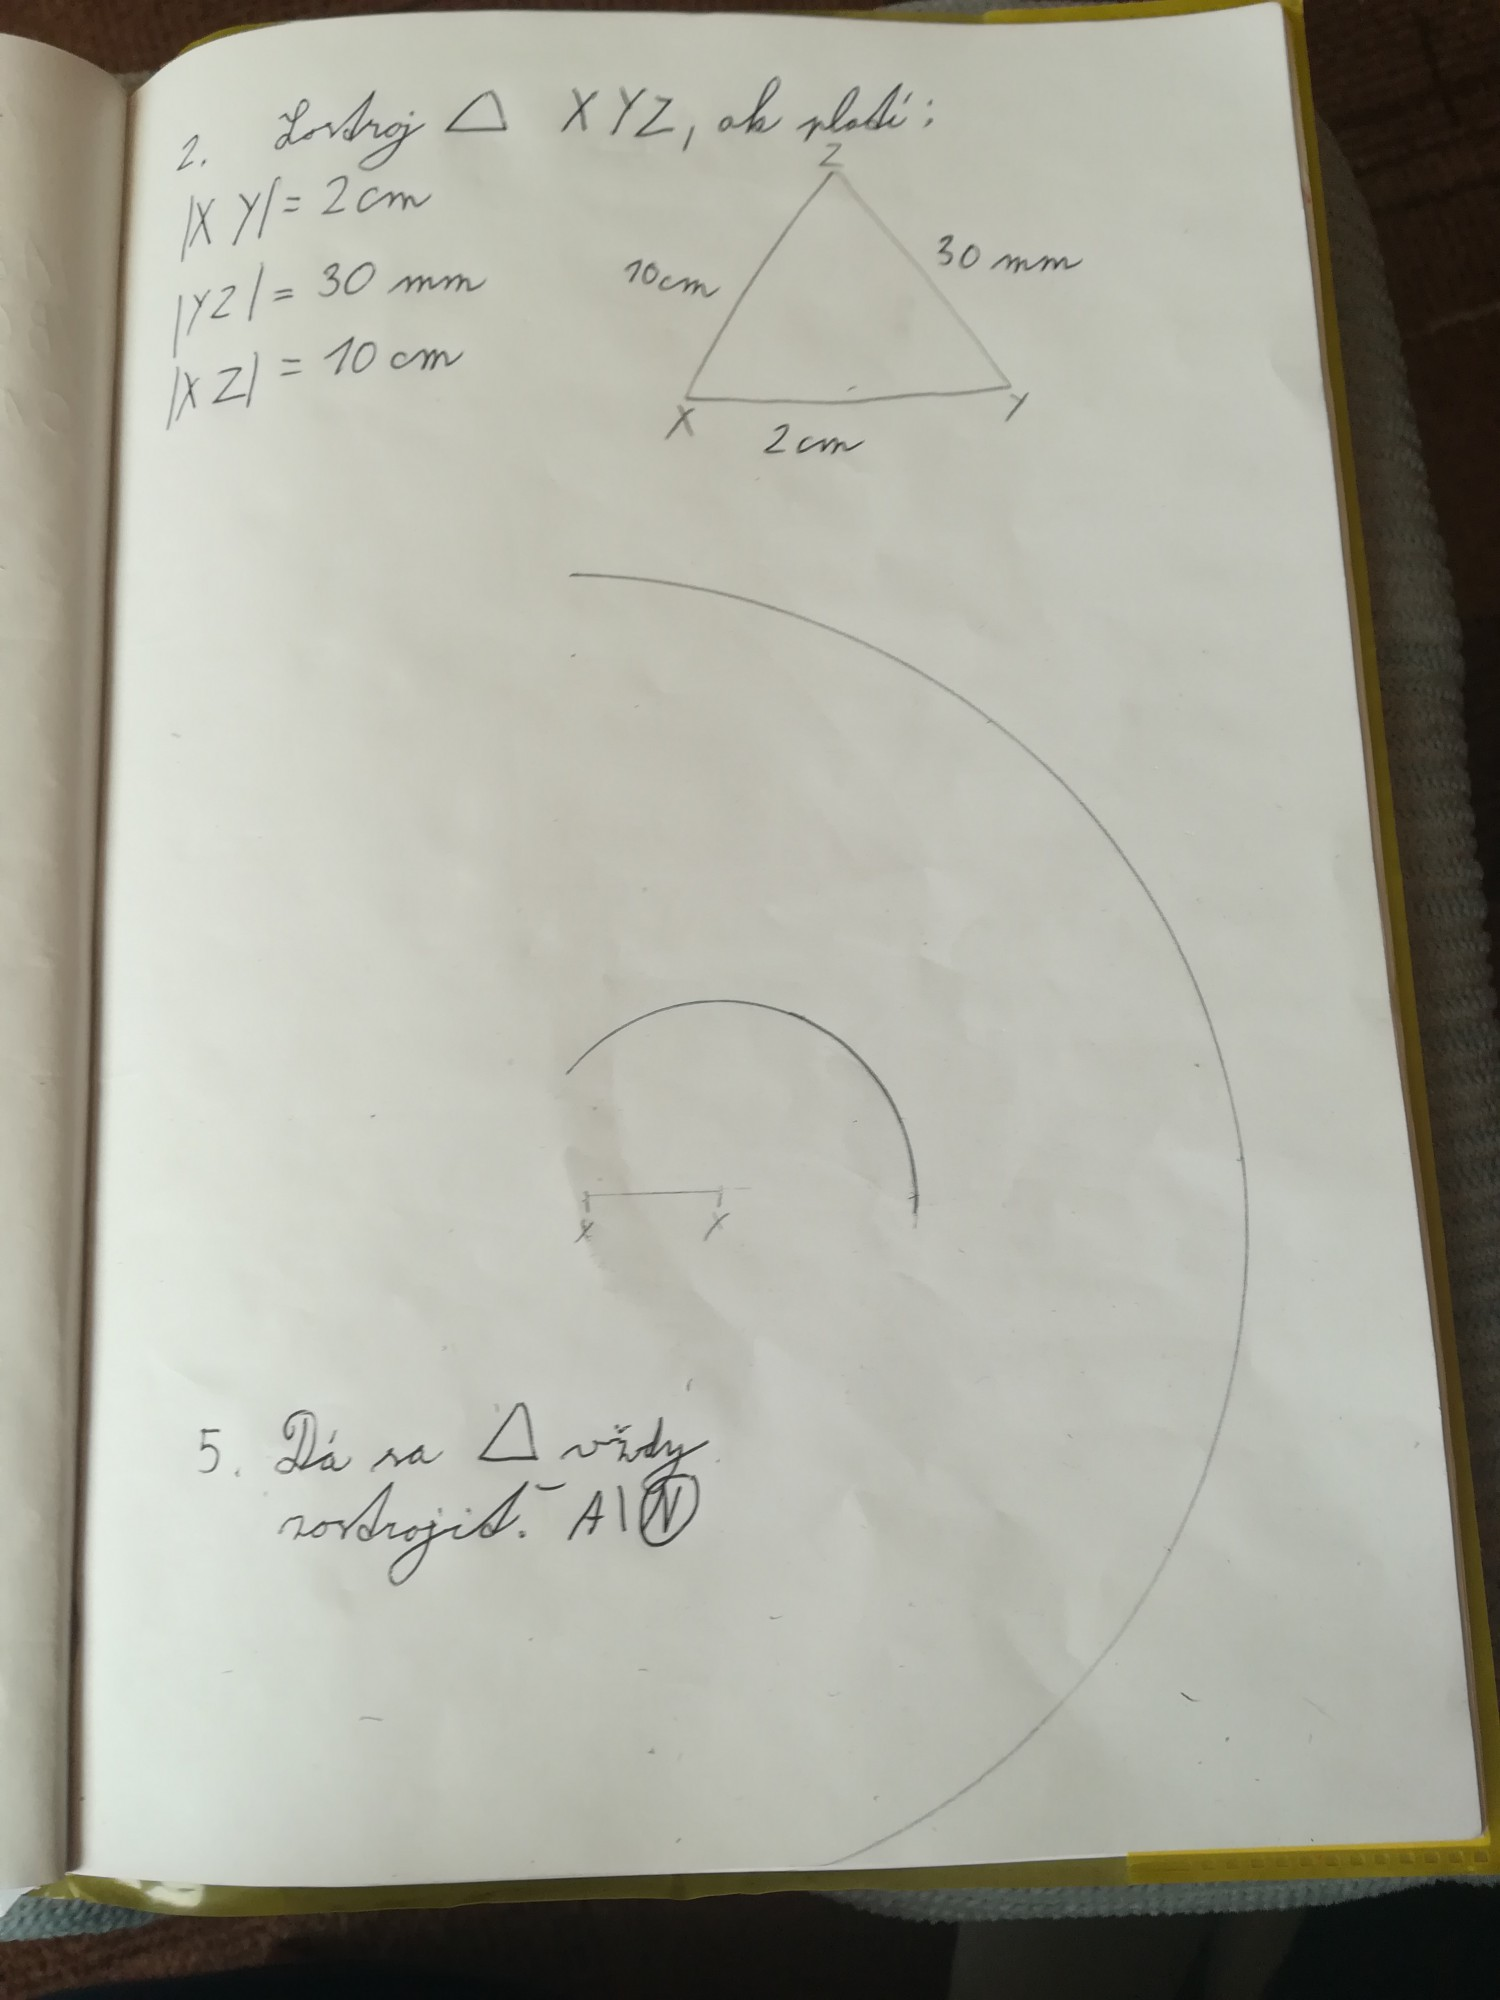 2. Zostroj △ XYZ, ak platí:
|XY| = 2 cm
|YZ| = 30 mm
|XZ| = 10 cm
Z
10 cm
30 mm
X
Y
2 cm
X
Y
5. Dá sa △ vždy
zostrojiť. A|N